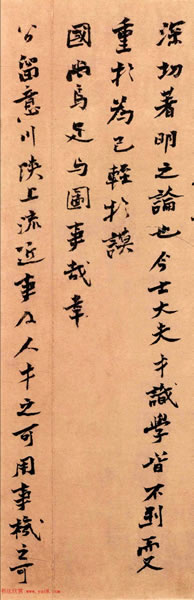 深切著明之論也今士大夫才識學皆不到而又
重於為己輕於謨
國無焉足與圖事哉幸
公留意川陝上流近事及人才之可用事機之可